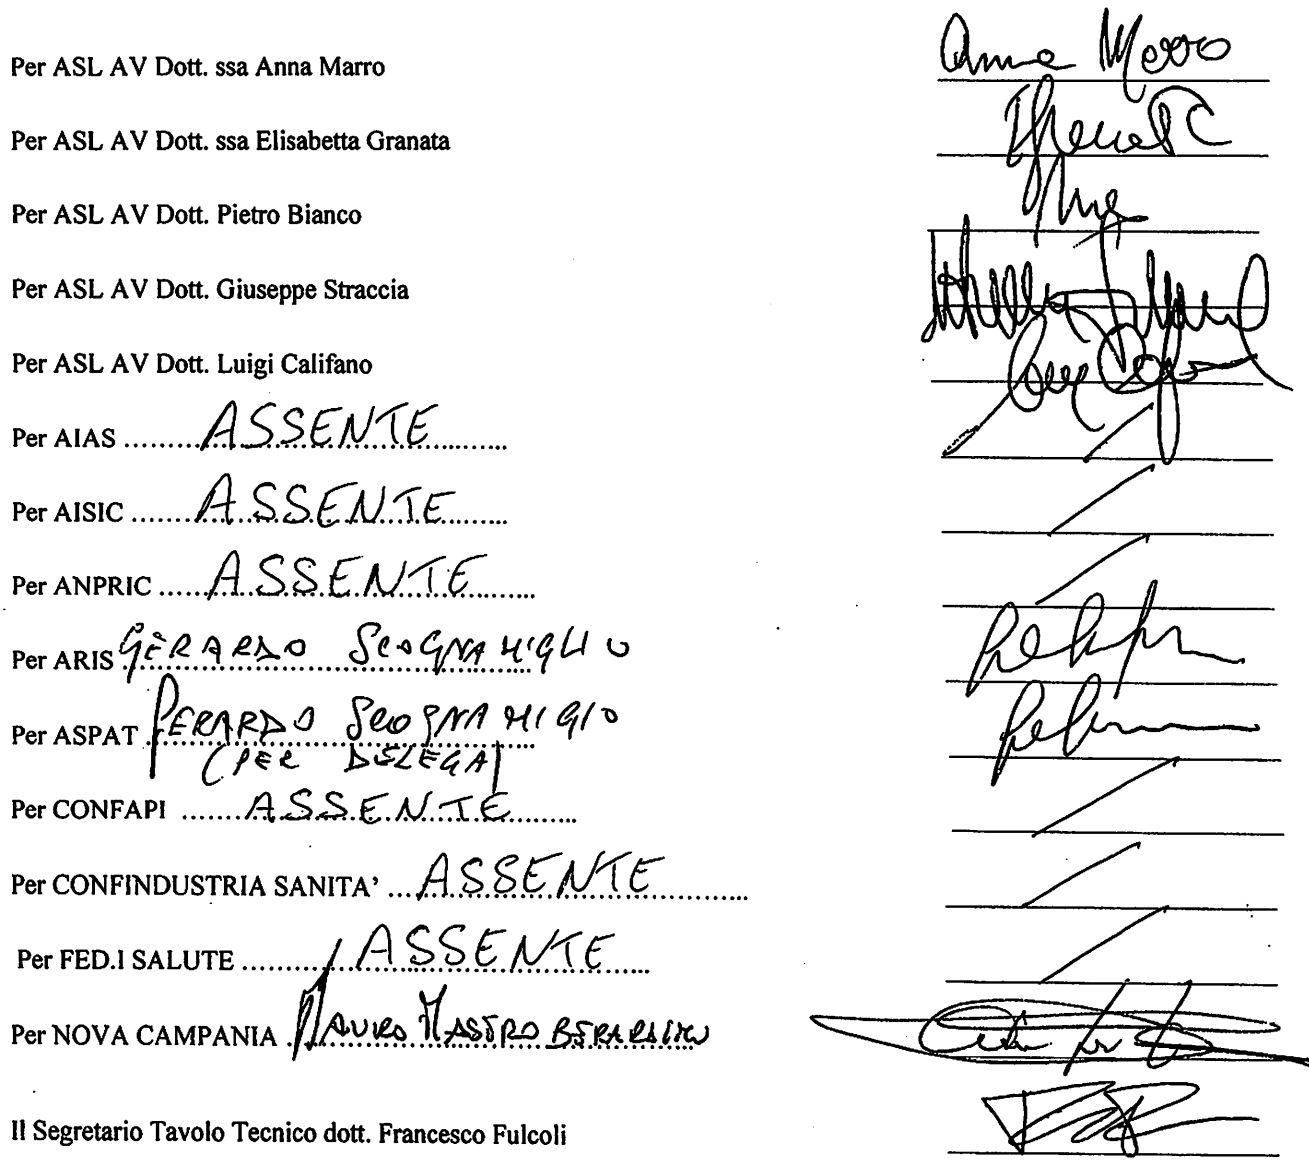 Per ASL AV Dott. ssa Anna Marro Anna Marro
Per ASL AV Dott. ssa Elisabetta Granata
Per ASL AV Dott. Pietro Bianco
Per ASL AV Dott. Giuseppe Straccia
Per ASL AV Dott. Luigi Califano
Per AIAS ASSENTE
Per AISIC ASSENTE
Per ANPRIC ASSENTE
Per ARIS GERARDO SCOGNAMIGLIO
Per ASPAT GERARDO SCOGNAMIGIO
(PER DELEGA)
Per CONFAPI ASSENTE
Per CONFINDUSTRIA SANITA' ASSENTE
Per FED.I SALUTE ASSENTE
Per NOVA CAMPANIA MAURO MASTROBERARDINO
Il Segretario Tavolo Tecnico dott. Francesco Fulcoli